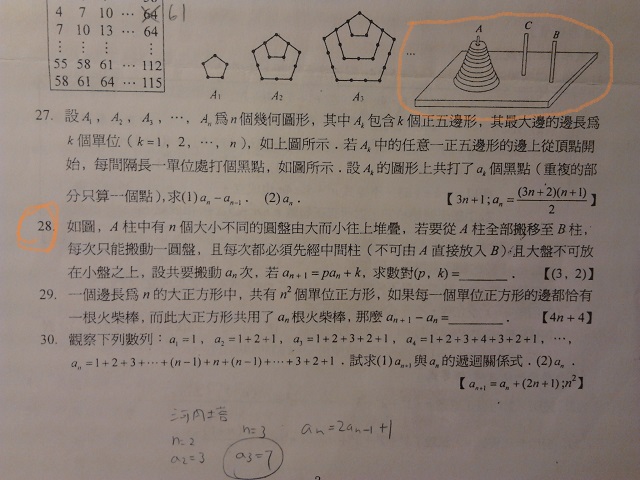 4 7 10 ⋯ 64 61
7 10 13 ⋯ 64
⋮ ⋮ ⋮ ⋮
55 58 61 ⋯ 112
58 61 64 ⋯ 115
A₁ A₂ A₃ ⋯ A C B
27. 設 A₁，A₂，A₃，⋯，Aₙ 為 n 個幾何圖形，其中 Aₖ 包含 k 個正五邊形，其最大邊的邊長為
k 個單位（k＝1，2，⋯，n），如上圖所示．若 Aₖ 中的任意一正五邊形的邊上從頂點開
始，每間隔長一單位處打個黑點，如圖所示．設 Aₖ 的圖形上共打了 aₖ 個黑點（重複的部
分只算一個點），求(1) aₙ－aₙ₋₁． (2) aₙ． 【3n＋1；aₙ＝(3n＋2)(n＋1)/2】
28. 如圖，A 柱中有 n 個大小不同的圓盤由大而小往上堆疊，若要從 A 柱全部搬移至 B 柱，
每次只能搬動一圓盤，且每次都必須先經中間柱（不可由 A 直接放入 B）且大盤不可放
在小盤之上，設共要搬動 aₙ 次，若 aₙ₊₁＝paₙ＋k，求數對(p, k)＝________． 【(3, 2)】
29. 一個邊長爲 n 的大正方形中，共有 n² 個單位正方形，如果每一個單位正方形的邊都恰有
一根火柴棒，而此大正方形共用了 aₙ 根火柴棒，那麼 aₙ₊₁－aₙ＝________． 【4n＋4】
30. 觀察下列數列：a₁＝1，a₂＝1＋2＋1，a₃＝1＋2＋3＋2＋1，a₄＝1＋2＋3＋4＋3＋2＋1，⋯，
aₙ＝1＋2＋3＋⋯＋(n－1)＋n＋(n－1)＋⋯＋3＋2＋1．試求(1) aₙ₊₁ 與 aₙ 的遞迴關係式．(2) aₙ．
【aₙ₊₁＝aₙ＋(2n＋1)；n²】
河內塔
n=2 n=3 aₙ=2aₙ₋₁+1
a₂=3 a₃=7